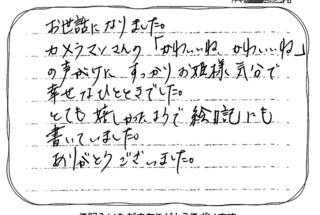 お世話になりました。
カメラマンさんの「かわいいね かわいいね」
の声がけに すっかりお姫様気分で
幸せなひとときでした。
とても嬉しかったようで絵日記にも
書いていました。
ありがとうございました。